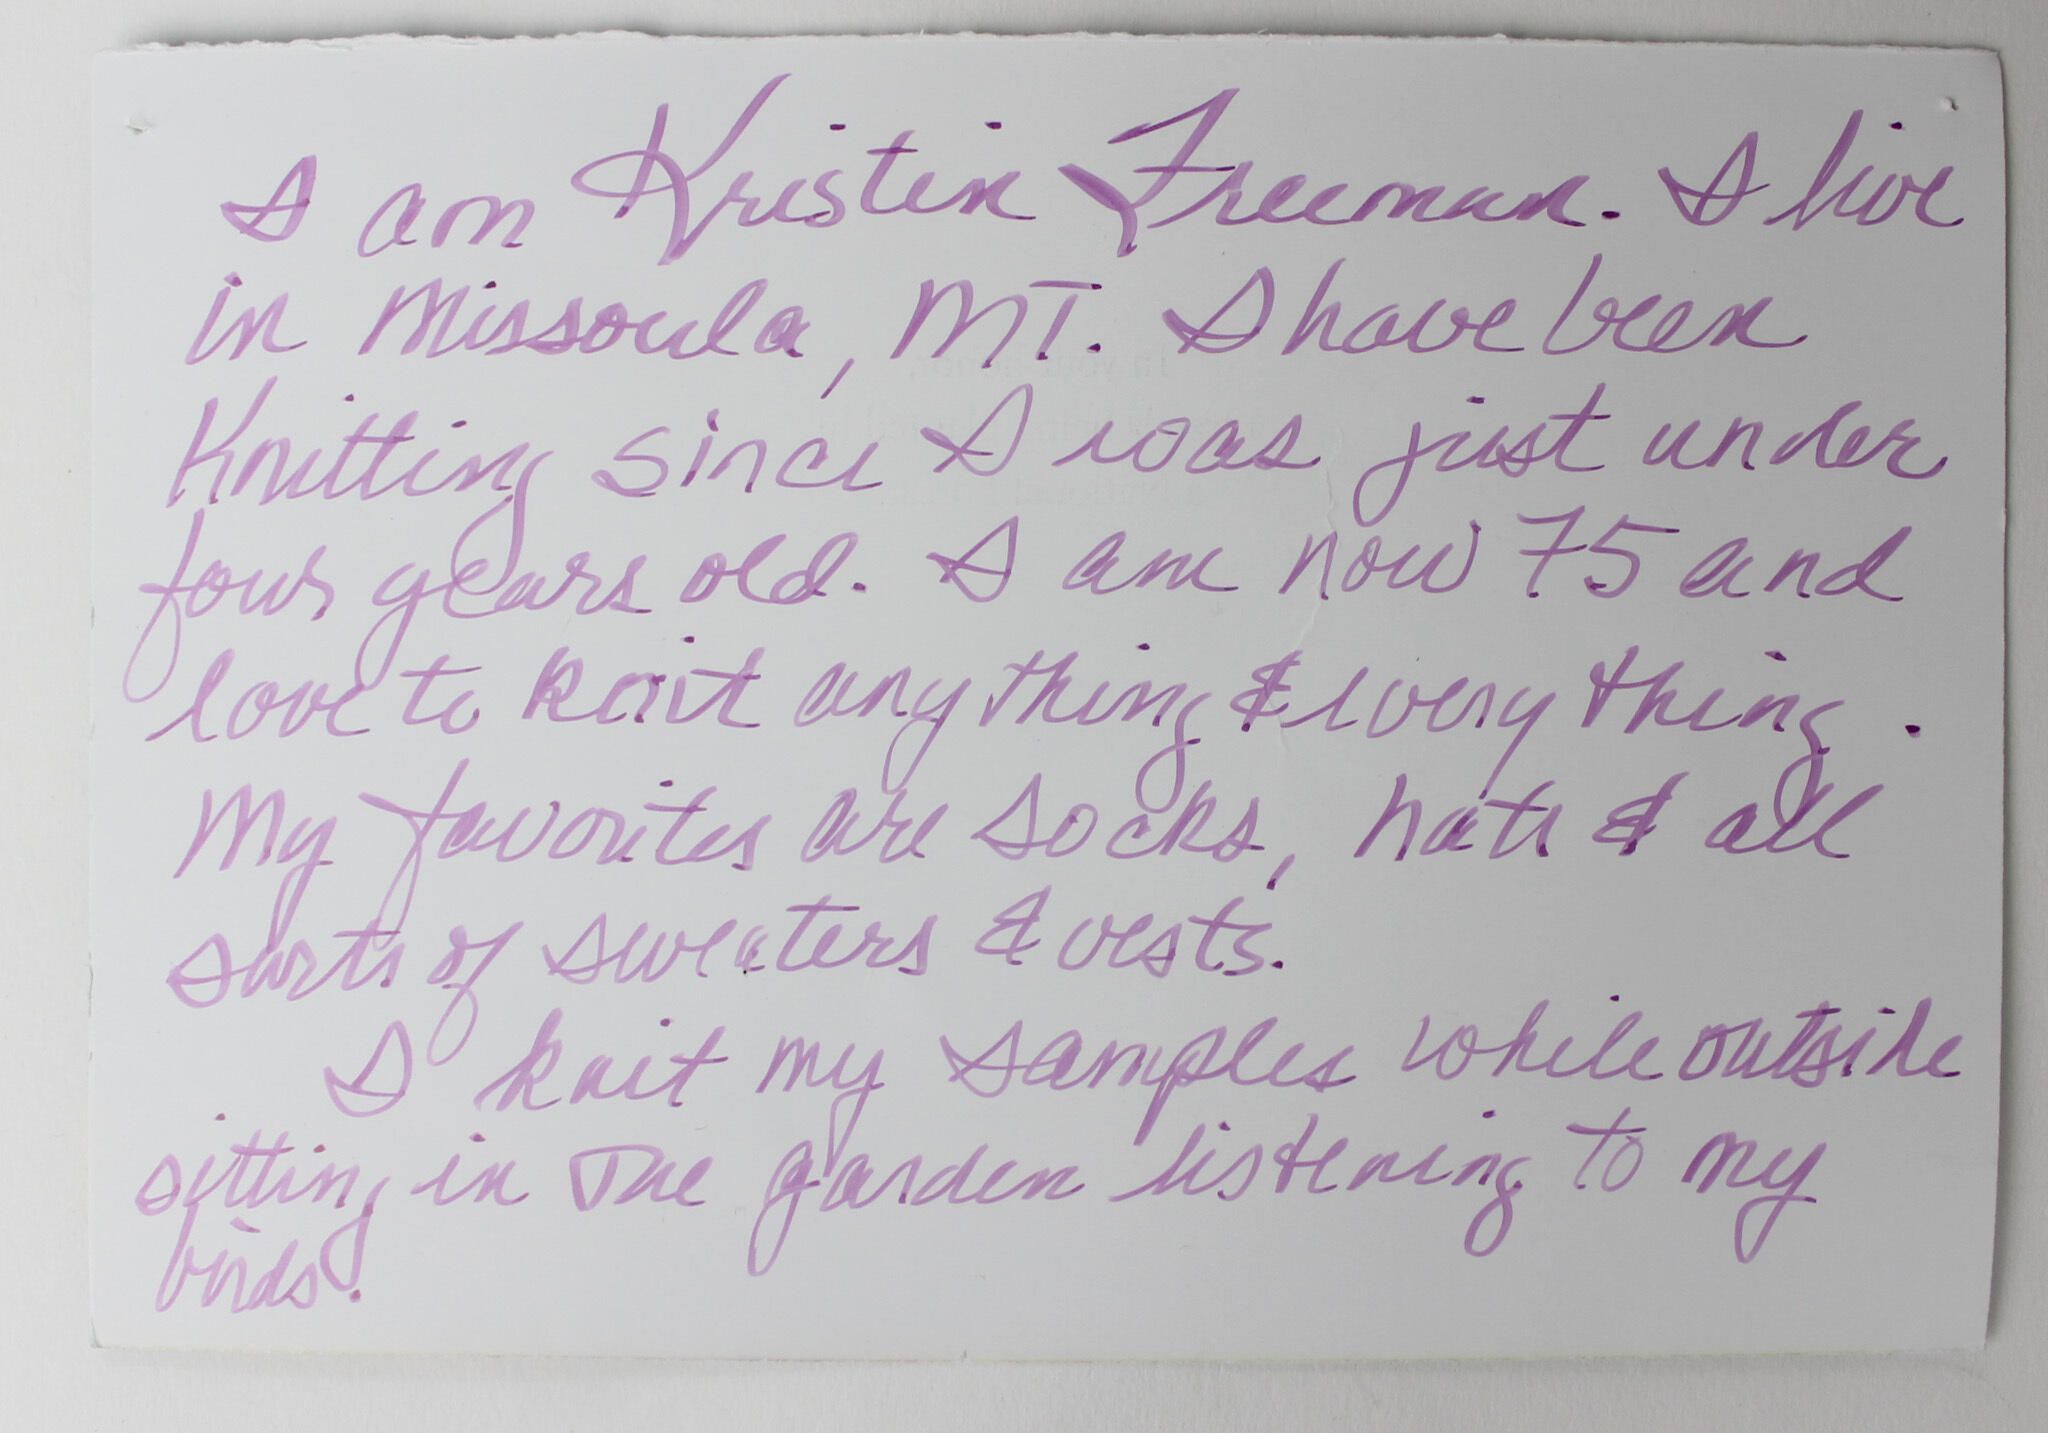 I am Kristin Freeman. I live
in Missoula, MT. I have been
Knitting since I was just under
four years old. I am now 75 and
love to knit anything & everything.
My favorites are socks, hats & all
sorts of sweaters & vests.
I knit my samples while outside
sitting in the garden listening to my
birds.